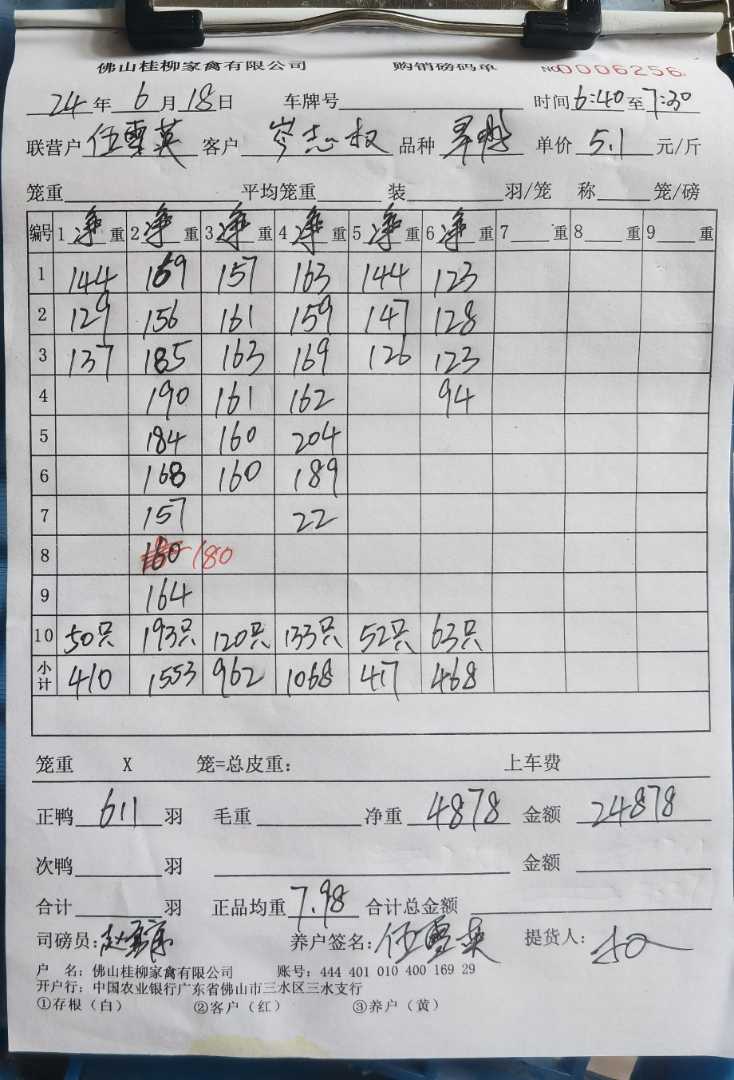 佛山桂柳家禽有限公司 购销磅码单 NO0006256
24年 6月18日 车牌号 时间6:40至7:30
联营户 伍雪英 客户 岑志权 品种 单价 5.1 元/斤
笼重 平均笼重 装 羽/笼 称 笼/磅
编号 1 净 重 2 净 重 3 净 重 4 净 重 5 净 重 6 净 重 7 重 8 重 9 重
1 144 169 157 163 144 123
2 129 156 161 159 147 128
3 137 185 163 169 126 123
4 190 161 162 94
5 184 160 204
6 168 160 189
7 157 22
8 180
9 164
10 50只 193只 120只 133只 52只 63只
小计 410 1553 962 1068 417 468
笼重 X 笼=总皮重: 上车费
正鸭 611 羽 毛重 净重 4878 金额 24878
次鸭 羽 金额
合计 羽 正品均重 7.98 合计总金额
司磅员: 养户签名: 伍雪英 提货人:
户 名: 佛山桂柳家禽有限公司 账号: 444 401 010 400 169 29
开户行: 中国农业银行广东省佛山市三水区三水支行
①存根（白） ②客户（红） ③养户（黄）